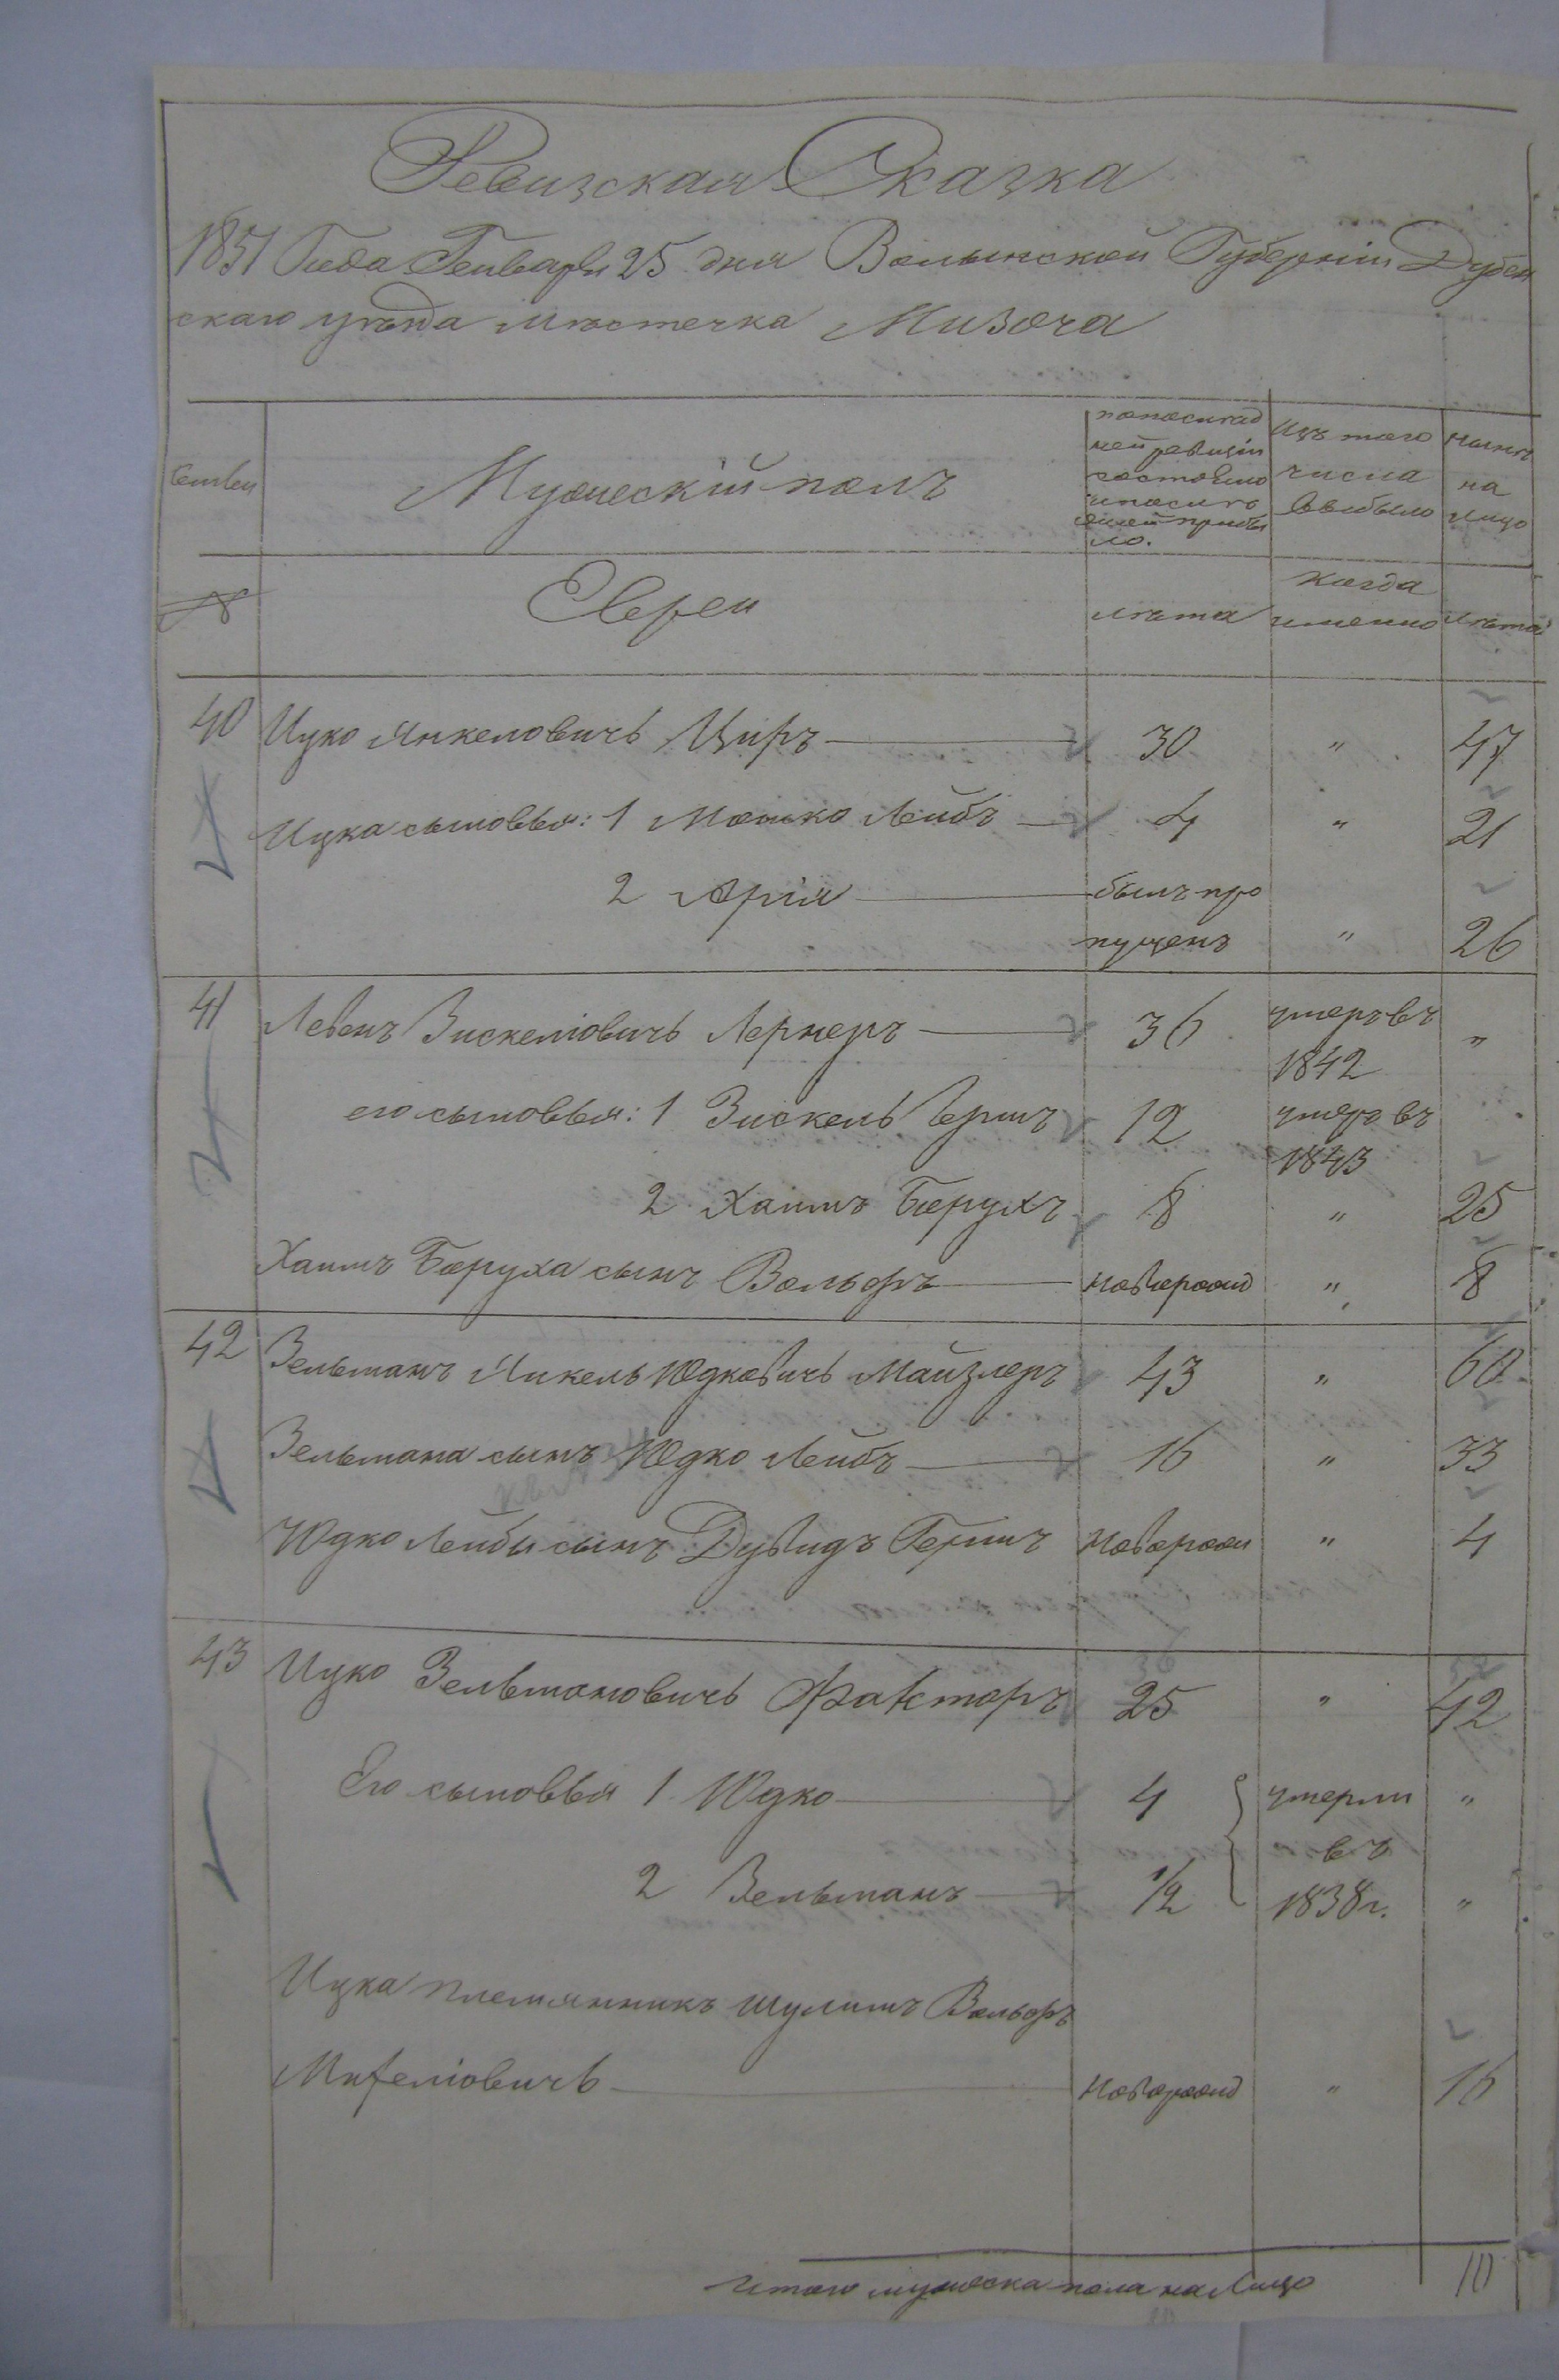 Ревизская Сказка
1851 Года Генваря 25 дня Волынской Губерніи Дубен
скаго уезда местечка Мизоча
Семьи
Мужескій полъ
по послед
ней ревизіи
состояло
и после
оной прибы
ло.
Изъ того
числа
выбыло
ныне
на
лицо
№
Евреи
лета
когда
именно
лета
40 Ицко Янкеловичь Циръ 30 " 47
Ицка сыновья: 1 Мошко Лейбъ 4 " 21
2 Арія былъ про
пущенъ " 26
41 Левенъ Зискеліовичь Лернеръ 36 умеръ въ "
1842
его сыновья: 1 Зискель Гершъ 12 умеръ въ
1843
2 Хаимъ Борухъ 8 " 25
Хаимъ Боруха сынъ Вольфъ новорожд " 8
42 Зельманъ Янкель Юдковичь Майзлеръ 43 " 60
Зельмана сынъ Юдко Лейбъ 16 " 33
Юдко Лейбы сынъ Дувидъ Гершъ новорож " 4
43 Ицко Зельмановичь Факторъ 25 " 42
Его сыновья 1 Юдко 4 умерли "
въ
2 Зельманъ 1/2 1838 г. "
Ицка племянникъ Шулимъ Вольфъ
новорожд " 16
Итого мужеска пола на лицо 10